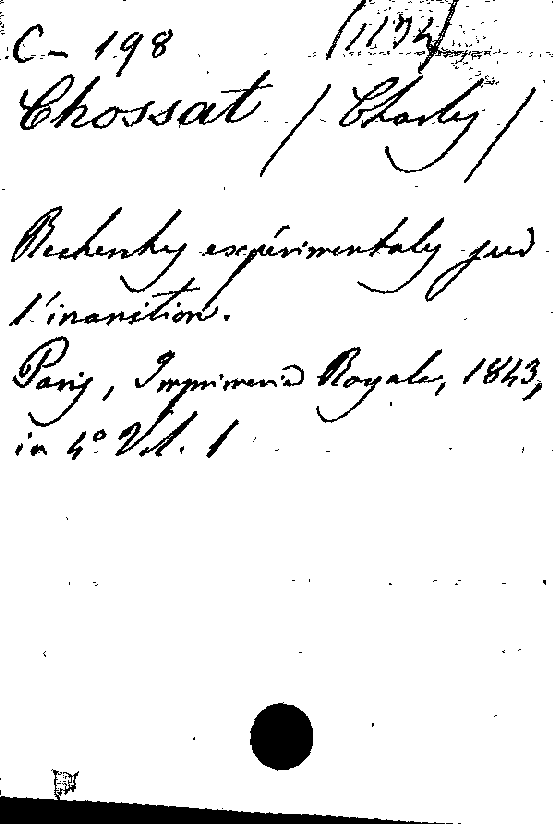 C- 198 (1134)
Chossat / Charles /
Recherches expérimentales sur
l'inanition.
Paris, Imprimerie Royale, 1843,
in 4° Vol. 1